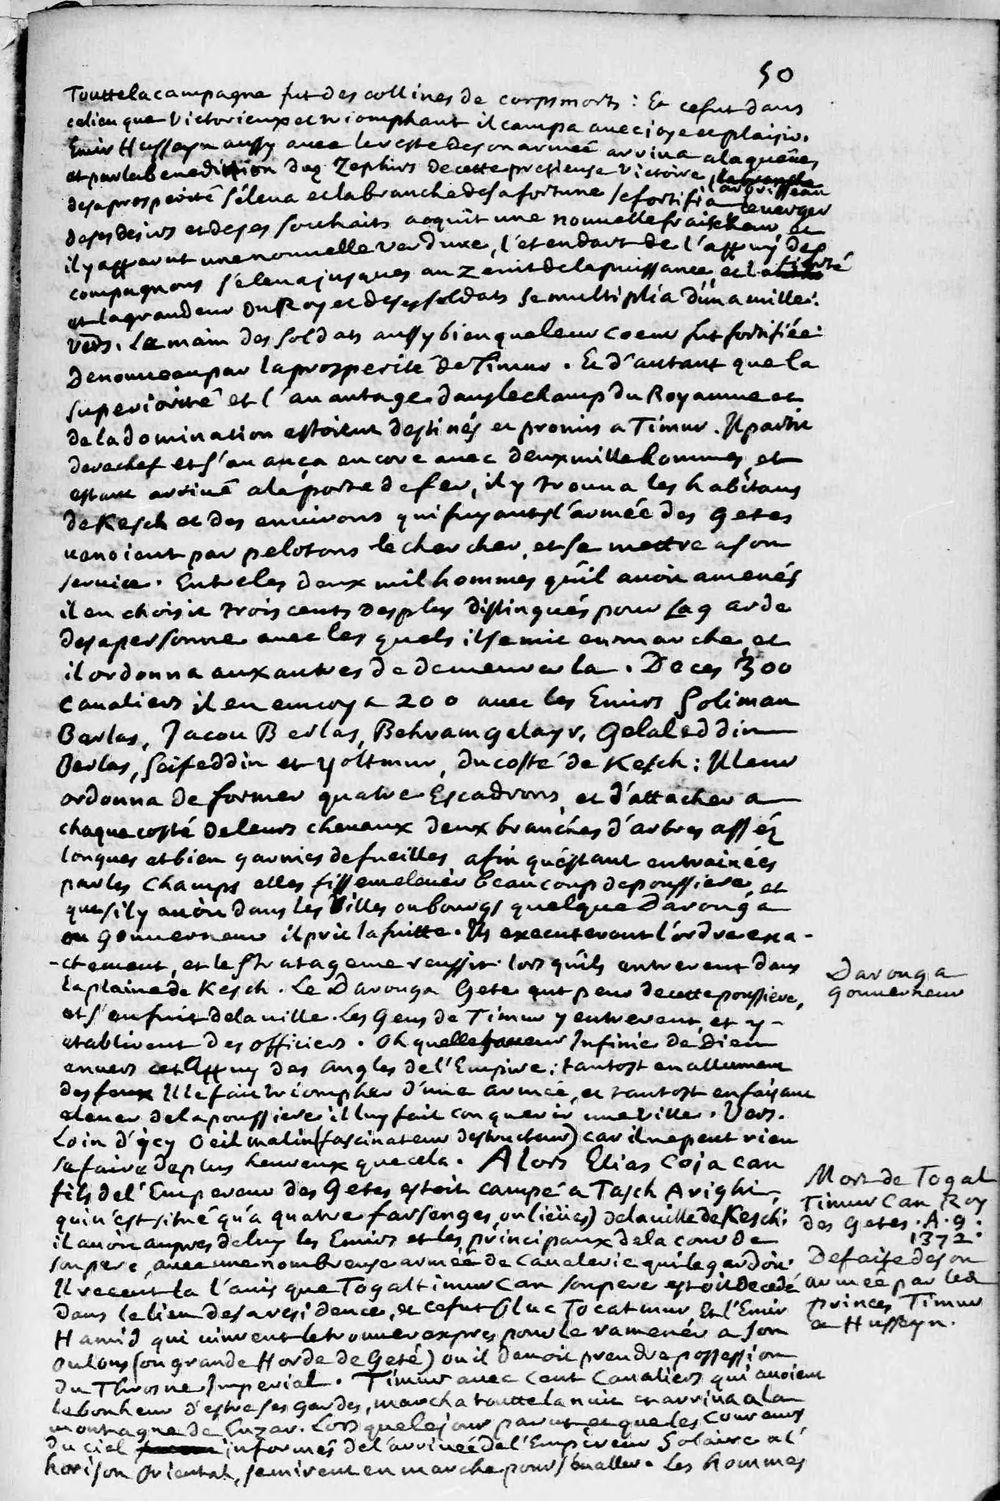 50
Toutte la campagne fut des collines de corps morts : Et ce fut dans
ce lieu que Victorieux et triomphant il campa avec joye et plaisir.
Emir Husseyn aussy avec le reste de son armeé arriva a la queües
et par la benediction des Zephirs de cette pretieuse Victoire l'arbrisseau
de sa prosperité s'éleva et la branche de sa fortune se fortifia le verger
de ses desirs et de ses souhaits acquit une nouvelle fraischeur et
il y apparut une nouvelle verdure, l'etendart de l'appuy des
compagnons s'éleva jusques au Zenit de la puissance, et la fierté
et la grandeur du Roy et de ses soldats se multiplia d'un a mille.
Vers. La main des soldats aussy bien que leur coeur fut fortifiée
de nouveau par la prosperité de Timur. Et d'autant que la
superiorité et l'avantage dans le champ du Royaume et
de la domination estoient destinés et promis a Timur. Il partit
derechef et s'avança encore avec deux mille hommes, et
estant arrivé a la porte de fer, il y trouva les habitans
de Kesch et des environs qui fuyants l'armée des Getes
venoient par pelotons le chercher, et se mettre a son
service. Entre les deux mil hommes qu'il avoit amenés
il en choisit trois cents des plus distingués pour la garde
de sa personne avec les quels il se mit en marche, et
il ordonna aux autres de demeurer la. De ces 300
Cavaliers il en envoya 200 avec les Emirs Soliman
Berlas, Jacou Berlas, Behram gelayr, Gelaleddin
Berlas, Seifeddin et yoltmur, du costé de Kesch : Il leur
ordonna de former quatre Escadrons, et d'attacher a
chaque costé de leurs chevaux deux branches d'arbres assés
longues et bien garnies de fueilles, afin qu'estant entrainées
par les champs elles fissent elever beaucoup de poussiere, et
que s'il y avoit dans les Villes ou bourgs quelque Darouga
ou Gouverneur il prit la fuitte. Ils executerent l'ordre exa-
-ctement, et le Stratageme reussit lors qu'ils entrerent dans
la plaine de Kesch. Le Darouga Gete eut peur de cette poussiere,
et s'enfuit de la ville. Les Gens de Timur y entrerent, et y-
etablirent des officiers. Oh quelle faveur Infinie de Dieu
envers cet Appuy des Angles de l'Empire : tantost en allumant
des feux Il le fait triompher d'une armée, et tantost en faisant
elever de la poussiere il luy fait conquerir une Ville. Vers.
Loin d'ycy Oeil malin (fascinateur destructeur) car il ne peut rien
se faire de plus heureux que cela. Alors Elias Coja can
fils de l'Empereur des Getes estoit campé a Tasch Arighi,
qui n'est situé qu'a quatre farsenges (ou lieües) de la ville de Kesch;
il avoit aupres de luy les Emirs et les principaux de la cour de
son pere, avec une nombreuse armée de Cavalerie qui le gardoit.
Il receut la l'avis que Togaltimur Can son pere estoit decedé
dans le lieu de sa residence, et ce fut Oluc Tocatmur Et l'Emir
Hamid qui vinrent le trouver expres pour le ramener a son
Oulous (ou grande Horde de Geté) ou il devoit prendre possession
du Throsne Imperial. Timur avec Cent Cavaliers qui avoient
le bonheur d'estre ses gardes, marcha toutte la nuit et arriva a la
montagne de Cuzar. Lors que le jour parut et que les Coureurs
du ciel informés de l'arrivée de l'Empereur Solaire a l'
horison Oriental, se mirent en marche pour s'en aller. Les hommes
Darouga
Gouverneur
Mort de Togal
Timur Can Roy
des Getes. A. 9.
1372.
Defaite de son
armée par les
princes Timur
et Husseyn.